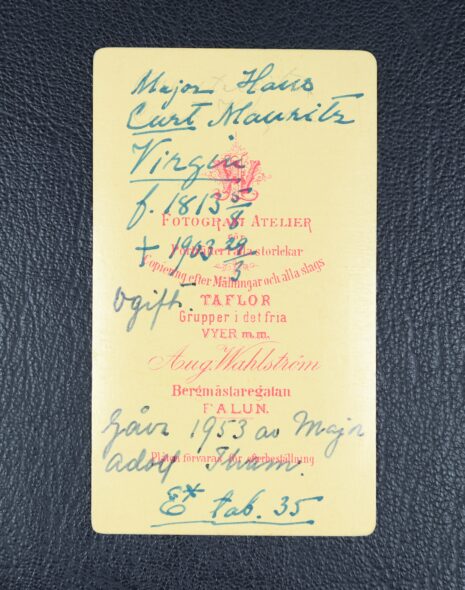 Major Hans
Curt Mauritz
Virgin
f. 1813 5/8
FOTOGRAFI ATELIER
för
Porträtter i alla storlekar
† 1903 29/3
Copiering efter Målningar och alla slags
Ogift.
TAFLOR
Grupper i det fria
VYER m.m.
Aug. Wahlström
Bergmästaregatan
FALUN.
Gåva 1953 av Major
Plåten förvaras för efterbeställning
Adolf Tham.
E* tab. 35